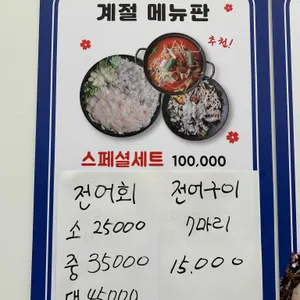 계절 메뉴판
추천!
스페셜세트 100,000
전어회
소 25000
중 35000
대 45000
전어구이
7마리
15.000